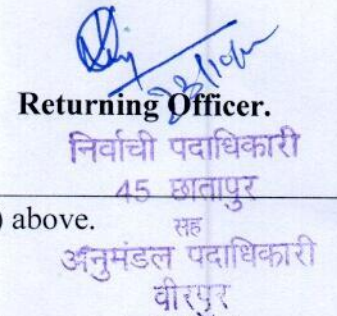 Returning Officer.
निर्वाची पदाधिकारी
45 छातापुर
) above.
सह
अनुमंडल पदाधिकारी
वीरपुर